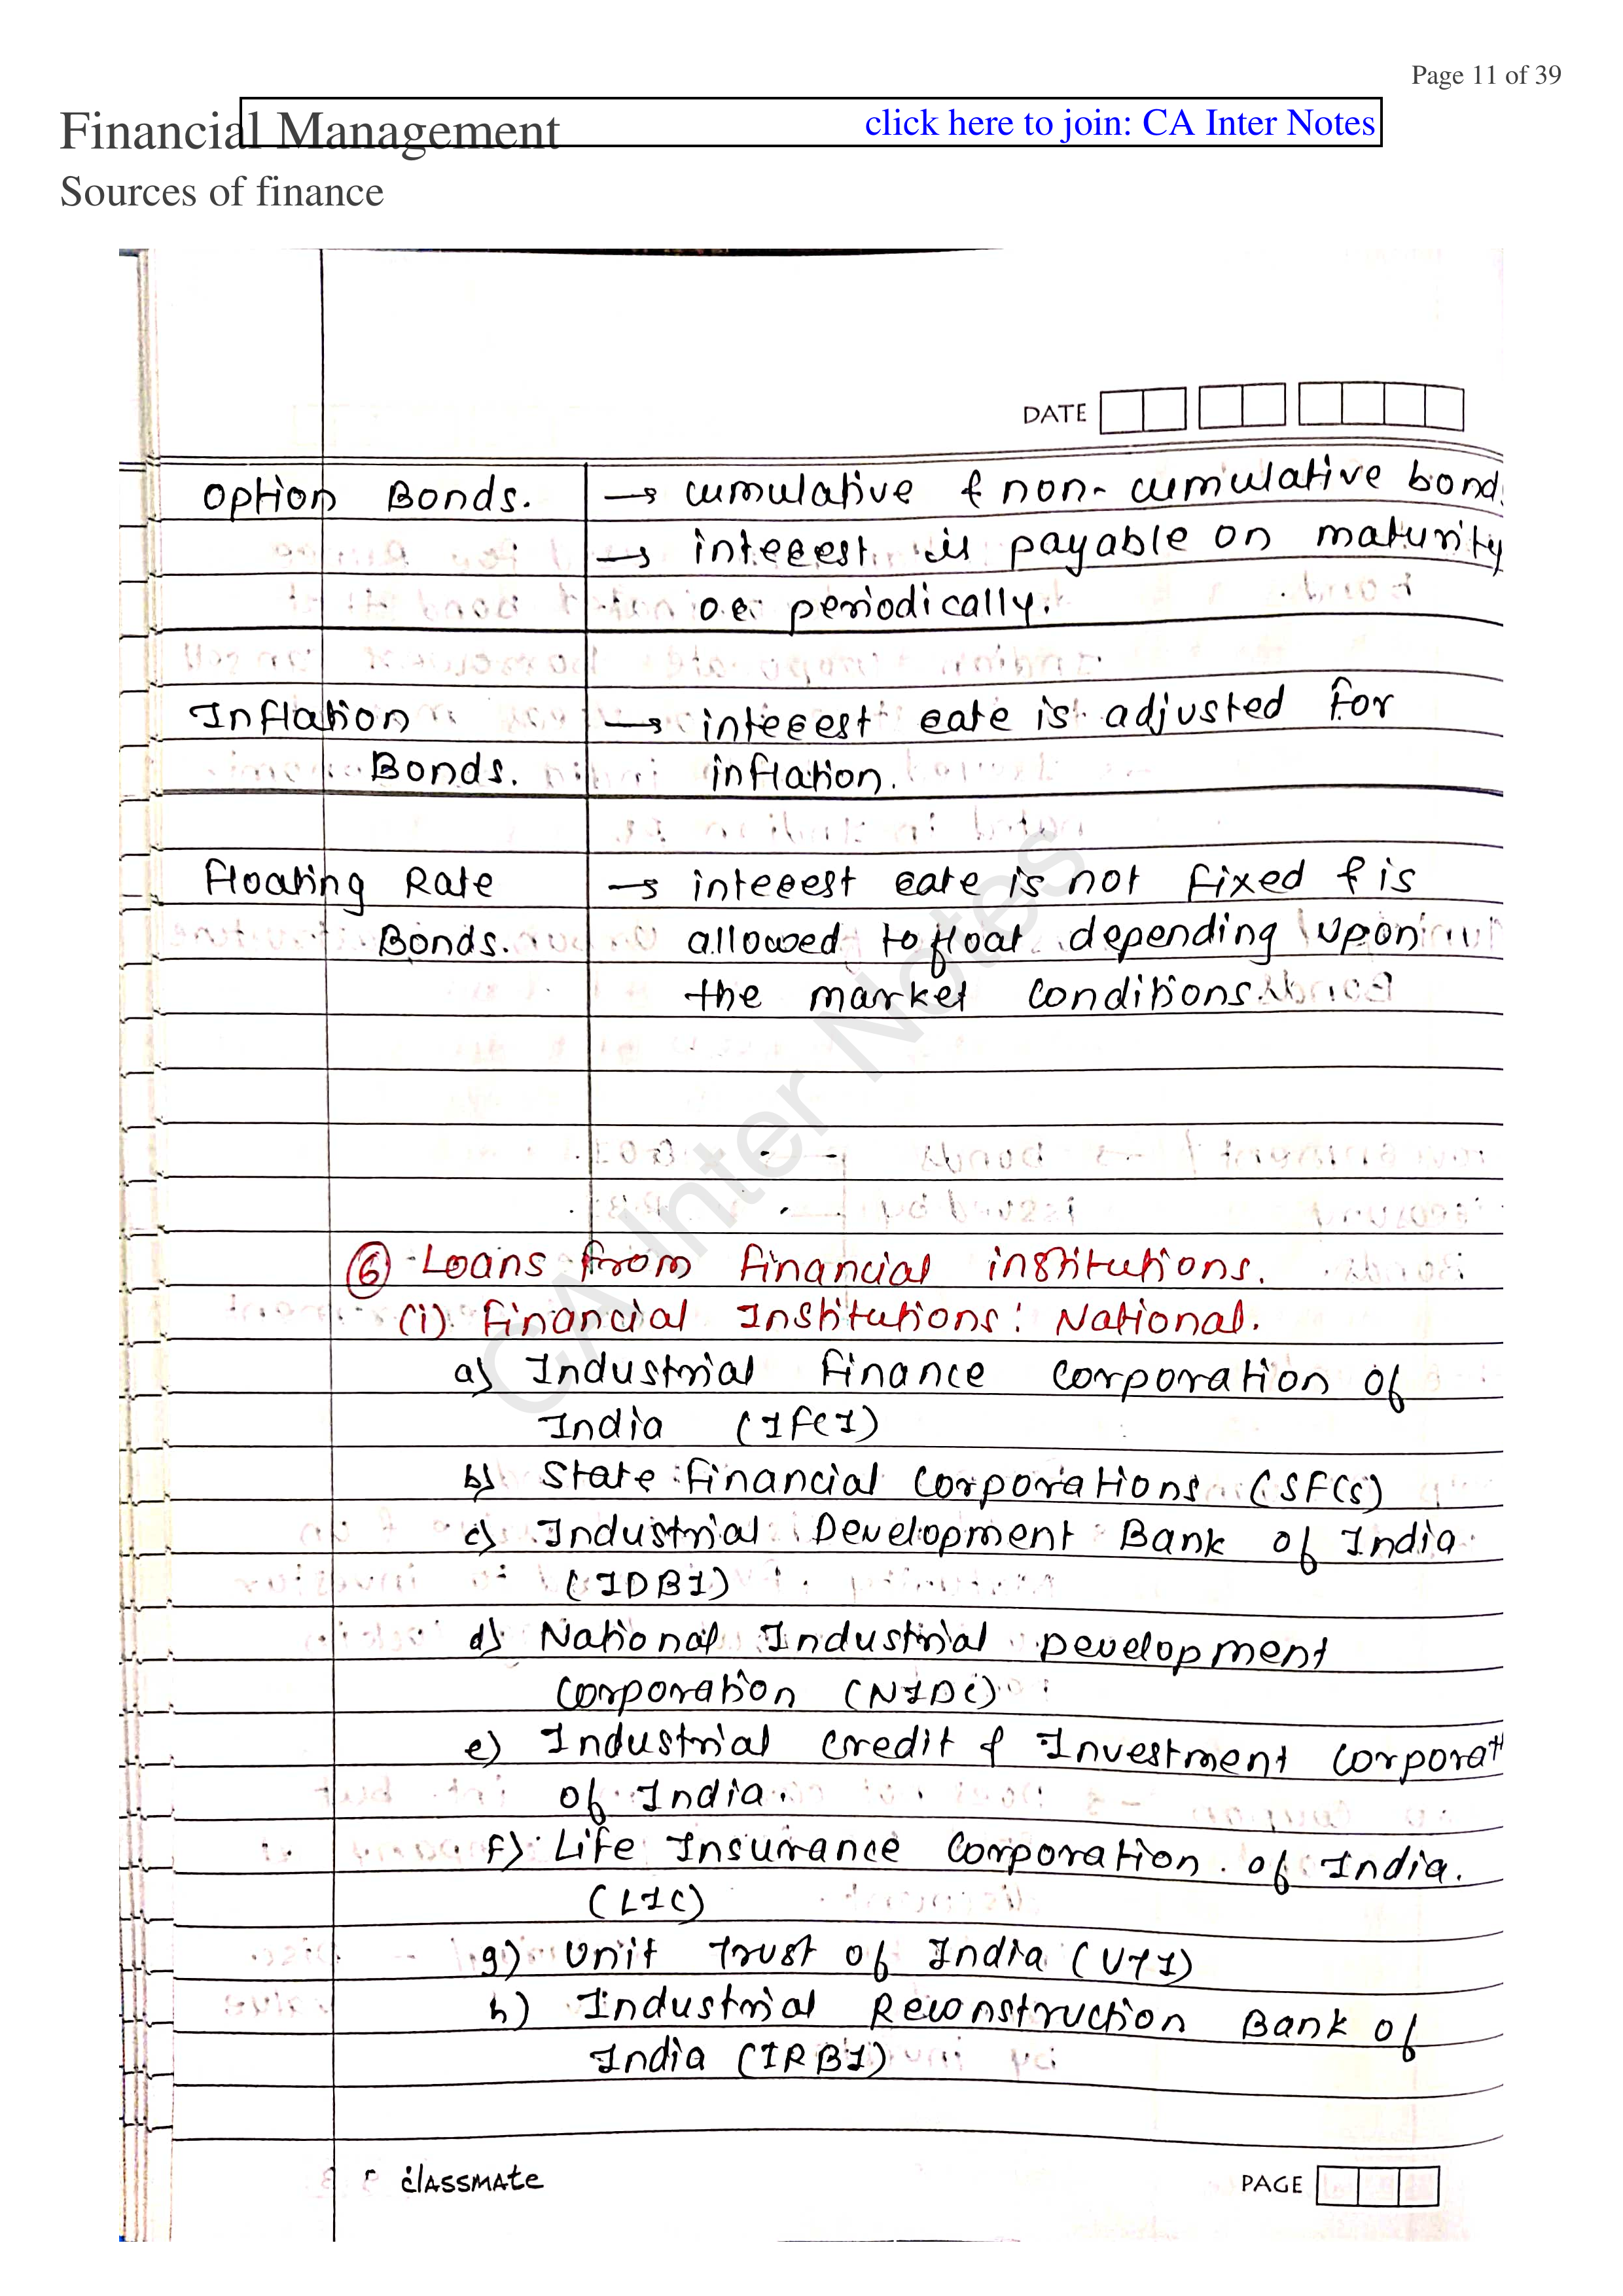 Page 11 of 39
Financial Management
click here to join: CA Inter Notes
Sources of finance
DATE
Option Bonds. → cumulative & non-cumulative bond.
→ interest is payable on maturity
or periodically.
Inflation → interest rate is adjusted for
Bonds. inflation.
Floating Rate → interest rate is not fixed & is
Bonds. allowed to float depending upon
the market conditions
CA Inter Notes
⑥ Loans from financial institutions.
(i) Financial Institutions: National.
a) Industrial Finance Corporation of
India (IFCI)
b) State Financial Corporations (SFCs)
c) Industrial Development Bank of India
(IDBI)
d) National Industrial Development
Corporation (NIDC)
e) Industrial Credit & Investment Corporat
of India.
f) Life Insurance Corporation of India.
(LIC)
g) Unit Trust of India (UTI)
h) Industrial Reconstruction Bank of
India (IRBI)
classmate
PAGE